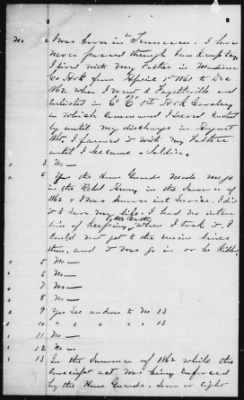 No 2 I was born in Tennessee. I have
never passed through bankruptcy
I lived with my Father in Madison
Co Ark from April 1st 1861 to Dec
1862 when I went to Fayetteville and
enlisted in Co "E" 1st Ark Cavalry
in which command I served contin
ly until my discharge in August
1865. I farmed it with my Father
until I became a Soldier.
" 3 No —
" 4 Yes the Home Guards made me go
in the Rebel Army in the Summer of
1862 & I was sworn into Service. I did
it to save my life. I had no inten
tion of keeping the Oath when I took it. I
could not get to the union lines
then, and it was go in or be killed
" 5 No —
" 6 No —
" 7 No —
" 8 No —
" 9 Yes See answer to No 13
" 10 " " " " " 13
" 11 No —
" 12 No —
" 13 In the Summer of 1862 while the
Conscript act was being enforced
by the Home Guards. Seven or eight